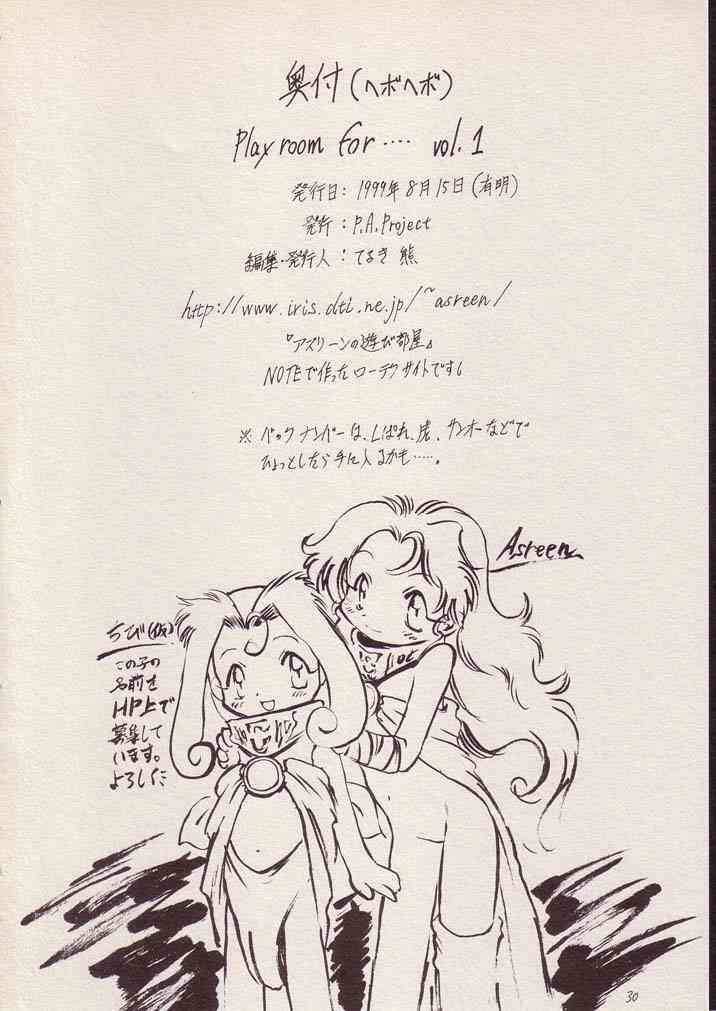 奥付(ヘボヘボ)
Playroom for‥‥ vol.1
発行日：1999年8月15日(有明)
発行：P.A.Project
編集・発行人：てるき熊
http://www.iris.dti.ne.jp/~asreen/
『アスリーンの遊び部屋』
NOTEで作ったローテクサイトです。
※ バックナンバーは、しぱれ、虎、サンオーなどで
ひょっとしたら手に入るかも‥‥‥。
Asreen
ちび(仮)
この子の
名前を
HP上で
募集して
います。
よろしこ
30